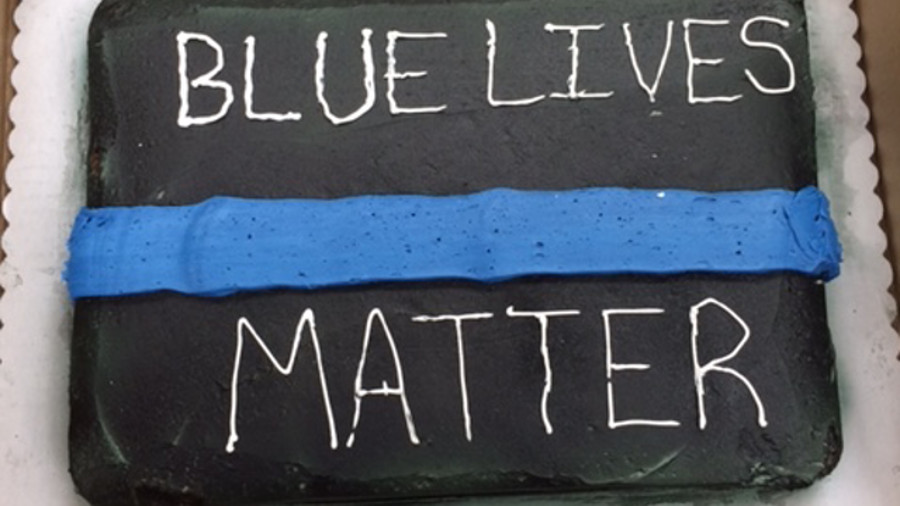 BLUE LIVES
MATTER